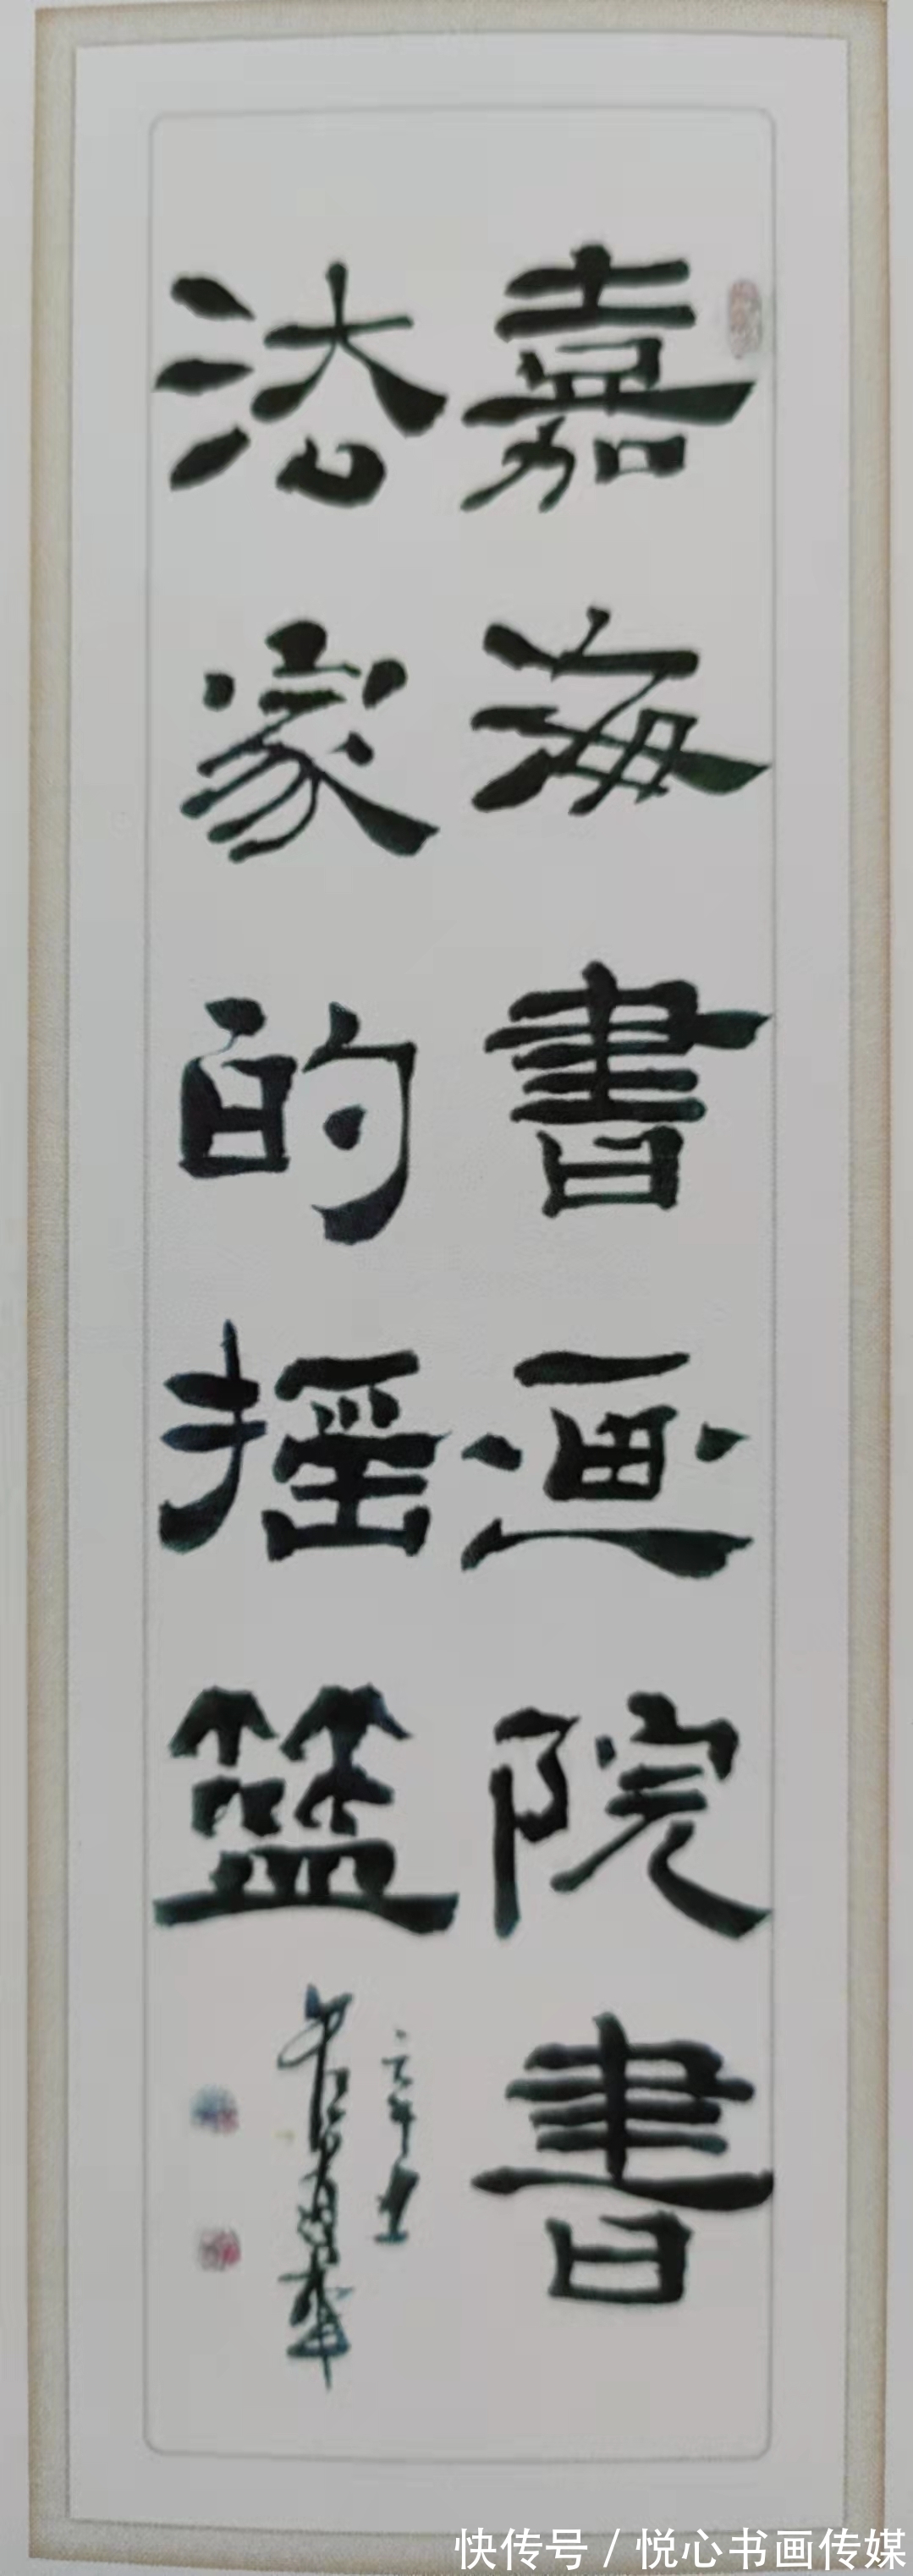 嘉海書画院書
法家的摇籃
快传号 / 悦心书画传媒